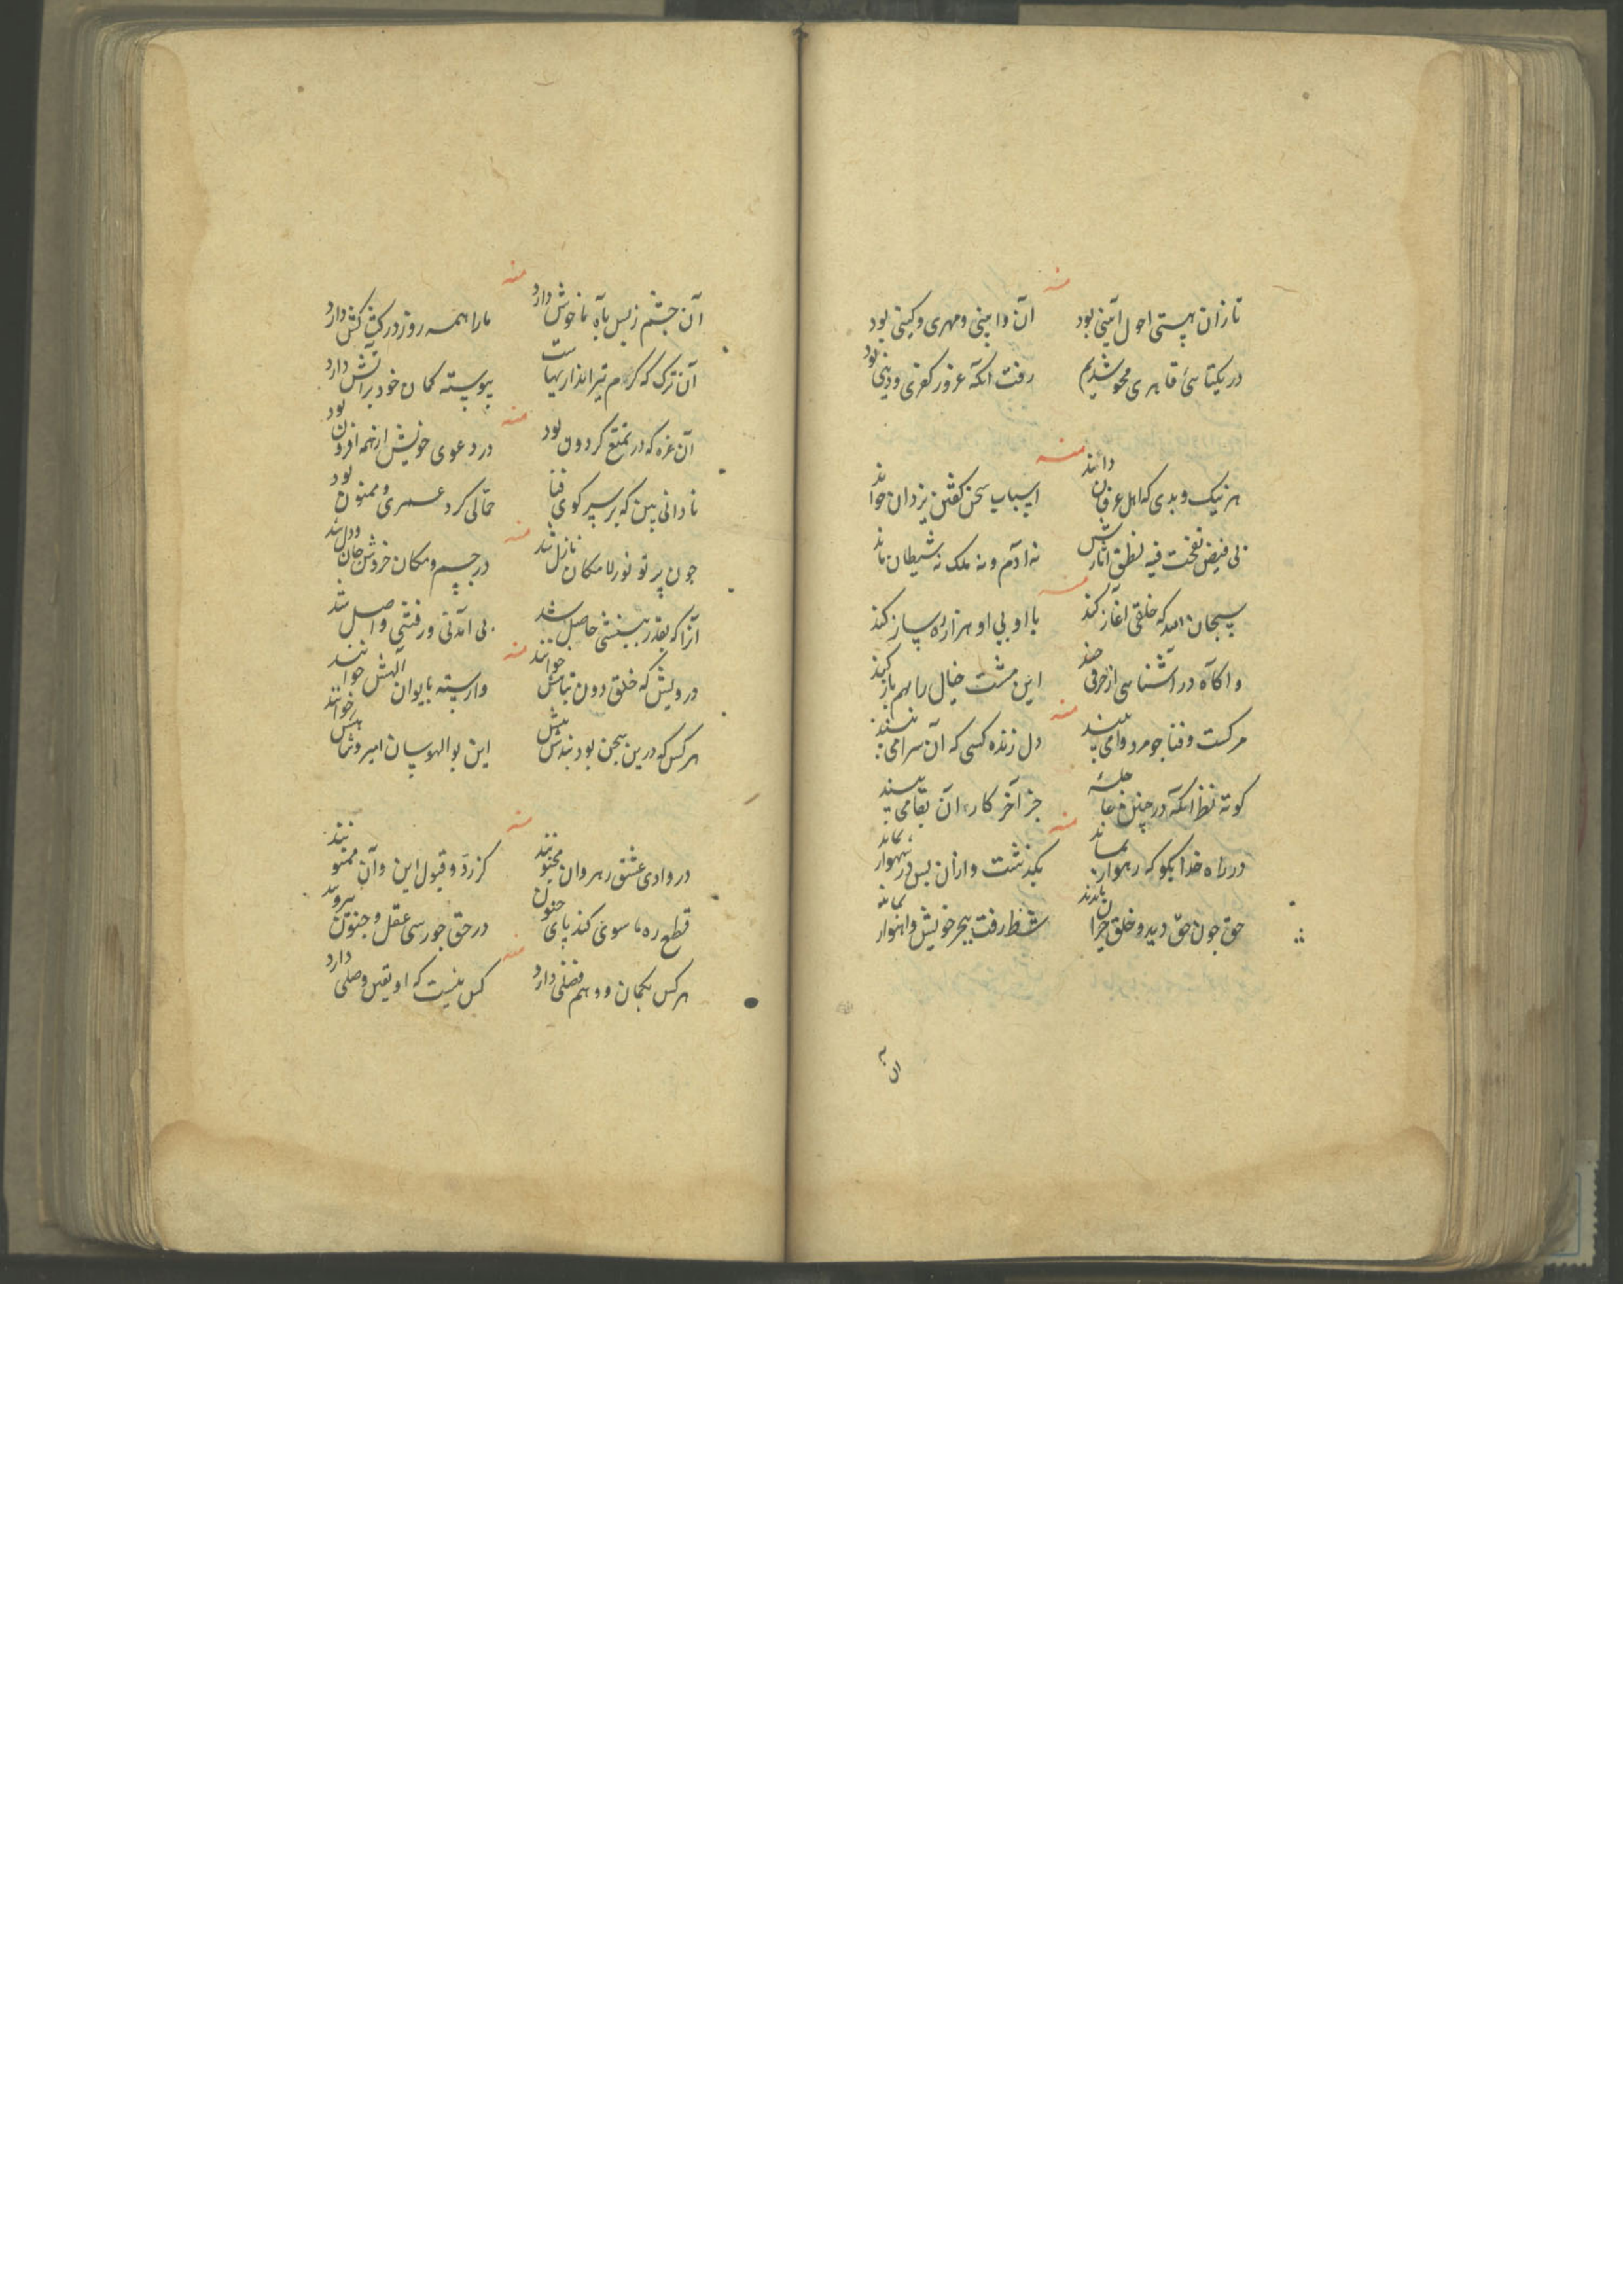 منه
تا زان هستی احول آئینی بود آن وابینی و مهری و کینی بود
در یکتائی قاهری محو شدیم رفت آنکه غرور کفری و دینی بود
منه
هر نیک و بدی که اهل عرفان دانند اسباب سخن کفتن یزدان خوانند
بی فیض نفخت فیه نطق آثارش نه آدم و نه ملک نه شیطان ماند
منه
سبحان الله که خلقی آغاز کند با او بی او هزار ره ساز کند
و آکاه در آشنائی از حرفی چند این مشت خیال را بهم باز کند
منه
مرکست و فنا جو مرد وا می بیند دل زنده کسی که آن سرا می بیند
کوته نظر آنکه در جنین جز آخر کار آن بقا می بیند
منه
در راه خدا بکو که رهوار نماند بکذشت و ازان بس در شهوار نماند
حق جون حق دید و خلق حیران ماندند شط رفت ببحر خویش و انهار نماند
منه
آن جشم ز بس باه ناخوش دارد مارا همه روز در کشاکش دارد
آن ترک که کرم تیر اندازیهاست پیوسته کمان خود بر آتش دارد
منه
آن غره که در تمتع کردون بود در دعوی خویش از همه افزون بود
نادانی بین که بر سر کوی فنا حمالی کرد عمری و ممنون بود
منه
جون پرتو نور لامکان نازل شد در جسم و مکان خردش جان و دل شد
آنرا که بقدر بینشی حاصل شد بی آمدنی و رفتنی واصل شد
منه
درویش که خلق دون تباهش خوانند وارسته بایوان آلهش خوانند
هر کس که درین سجن بود بندش بیش این بوالهوسان امیر و شاهش خوانند
منه
در وادی عشق رهروان مجنونند کز رد و قبول این و آن ممنونند
قطع ره ما سوی کند پای جنون در حق جو رسی عقل و جنون بیرونند
منه
هر کس بکمان و وهم فضلی دارد کس نیست که او یقین وصلی دارد